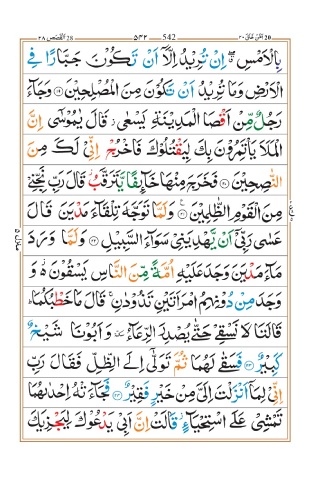 القصص ٢٨ ٥٤٢ 542 امن خلق ٢٠
بِالْاَمْسِ ۖ اِنْ تُرِيْدُ اِلَّاۤ اَنْ تَكُوْنَ جَبَّارًا فِي
الْاَرْضِ وَمَا تُرِيْدُ اَنْ تَكُوْنَ مِنَ الْمُصْلِحِيْنَ ﴿۱۹﴾ وَجَآءَ
رَجُلٌ مِّنْ اَقْصَا الْمَدِيْنَةِ يَسْعٰى ؗ قَالَ يٰمُوْسٰۤى اِنَّ
الْمَلَاَ يَاْتَمِرُوْنَ بِكَ لِيَقْتُلُوْكَ فَاخْرُجْ اِنِّيْ لَكَ مِنَ
النّٰصِحِيْنَ ﴿۲۰﴾ فَخَرَجَ مِنْهَا خَآئِفًا يَّتَرَقَّبُ ؗ قَالَ رَبِّ نَجِّنِيْ
مِنَ الْقَوْمِ الظّٰلِمِيْنَ ﴿۲۱﴾ وَلَمَّا تَوَجَّهَ تِلْقَآءَ مَدْيَنَ قَالَ
عَسٰى رَبِّيْۤ اَنْ يَّهْدِيَنِيْ سَوَآءَ السَّبِيْلِ ﴿۲۲﴾ وَلَمَّا وَرَدَ
مَآءَ مَدْيَنَ وَجَدَ عَلَيْهِ اُمَّةً مِّنَ النَّاسِ يَسْقُوْنَ ۬ وَ
وَجَدَ مِنْ دُوْنِهِمُ امْرَاَتَيْنِ تَذُوْدٰنِ ۚ قَالَ مَا خَطْبُكُمَا ؕ
قَالَتَا لَا نَسْقِيْ حَتّٰى يُصْدِرَ الرِّعَآءُ ٚ وَاَبُوْنَا شَيْخٌ
كَبِيْرٌ ﴿۲۳﴾ فَسَقٰى لَهُمَا ثُمَّ تَوَلّٰۤى اِلَى الظِّلِّ فَقَالَ رَبِّ
اِنِّيْ لِمَاۤ اَنْزَلْتَ اِلَيَّ مِنْ خَيْرٍ فَقِيْرٌ ﴿۲۴﴾ فَجَآءَتْهُ اِحْدٰىهُمَا
تَمْشِيْ عَلَى اسْتِحْيَآءٍ ؗ قَالَتْ اِنَّ اَبِيْ يَدْعُوْكَ لِيَجْزِيَكَ